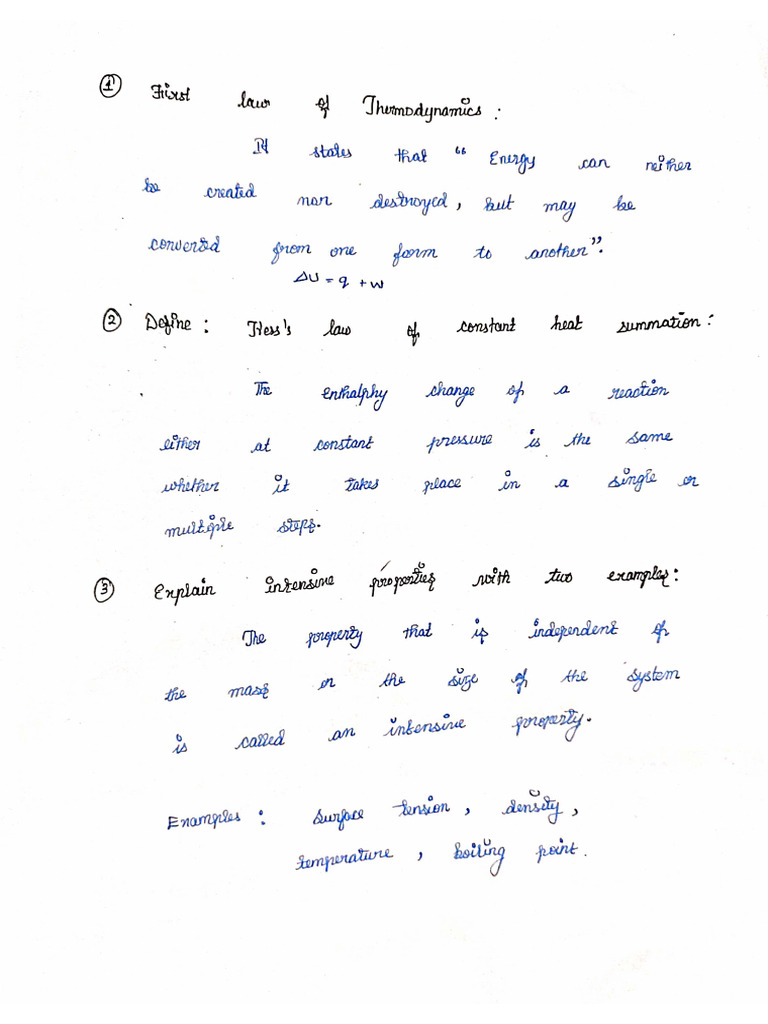 ① First law of Thermodynamics :
It states that “ Energy can neither
be created nor destroyed, but may be
converted from one form to another”.
ΔU = q + w
② Define : Hess's law of constant heat summation :
The enthalphy change of a reaction
either at constant pressure is the same
whether it takes place in a single or
multiple steps.
③ Explain intensive properties with two examples :
The property that is independent of
the mass or the size of the system
is called an intensive property.
Examples : Surface tension , density ,
temperature , boiling point .